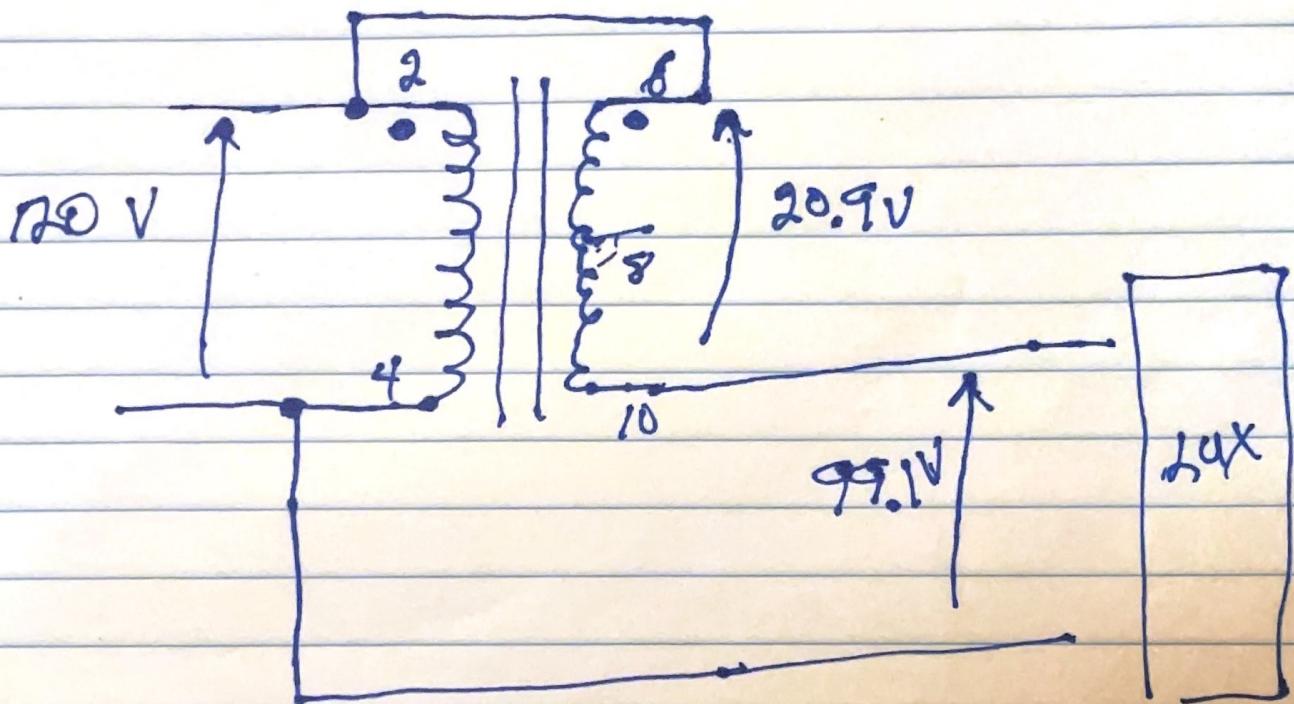 2
6
120 V
20.9V
8
4
10
99.1V